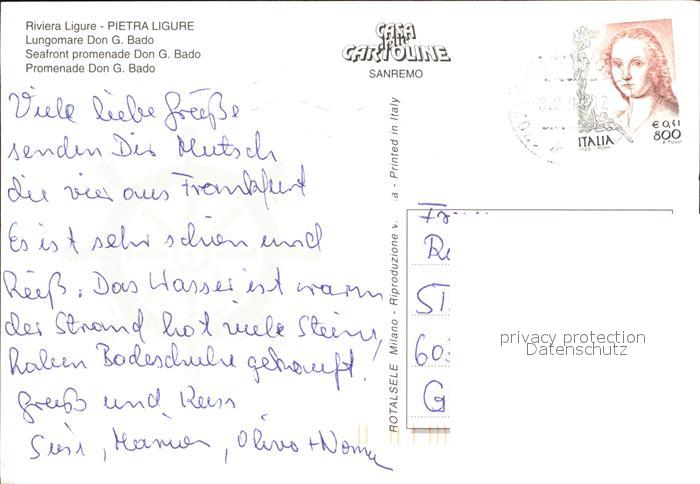 Riviera Ligure - PIETRA LIGURE
Lungomare Don G. Bado
Seafront promenade Don G. Bado
Promenade Don G. Bado
CASA
delle
CARTOLINE
SANREMO
€ 0,41
800
ITALIA
Viele liebe Grüße
senden Dir Mutsch
die vier aus Frankfurt
Es ist sehr schön und
heiß. Das Wasser ist warm
der Strand hat viele Steine,
haben Badeschuhe gekauft.
Gruß und Kuss
Susi, Marius, Olivo + Nonna
ROTALSELE Milano - Riproduzione v. a - Printed in Italy
Fr
R
ST
60
G
privacy protection
Datenschutz